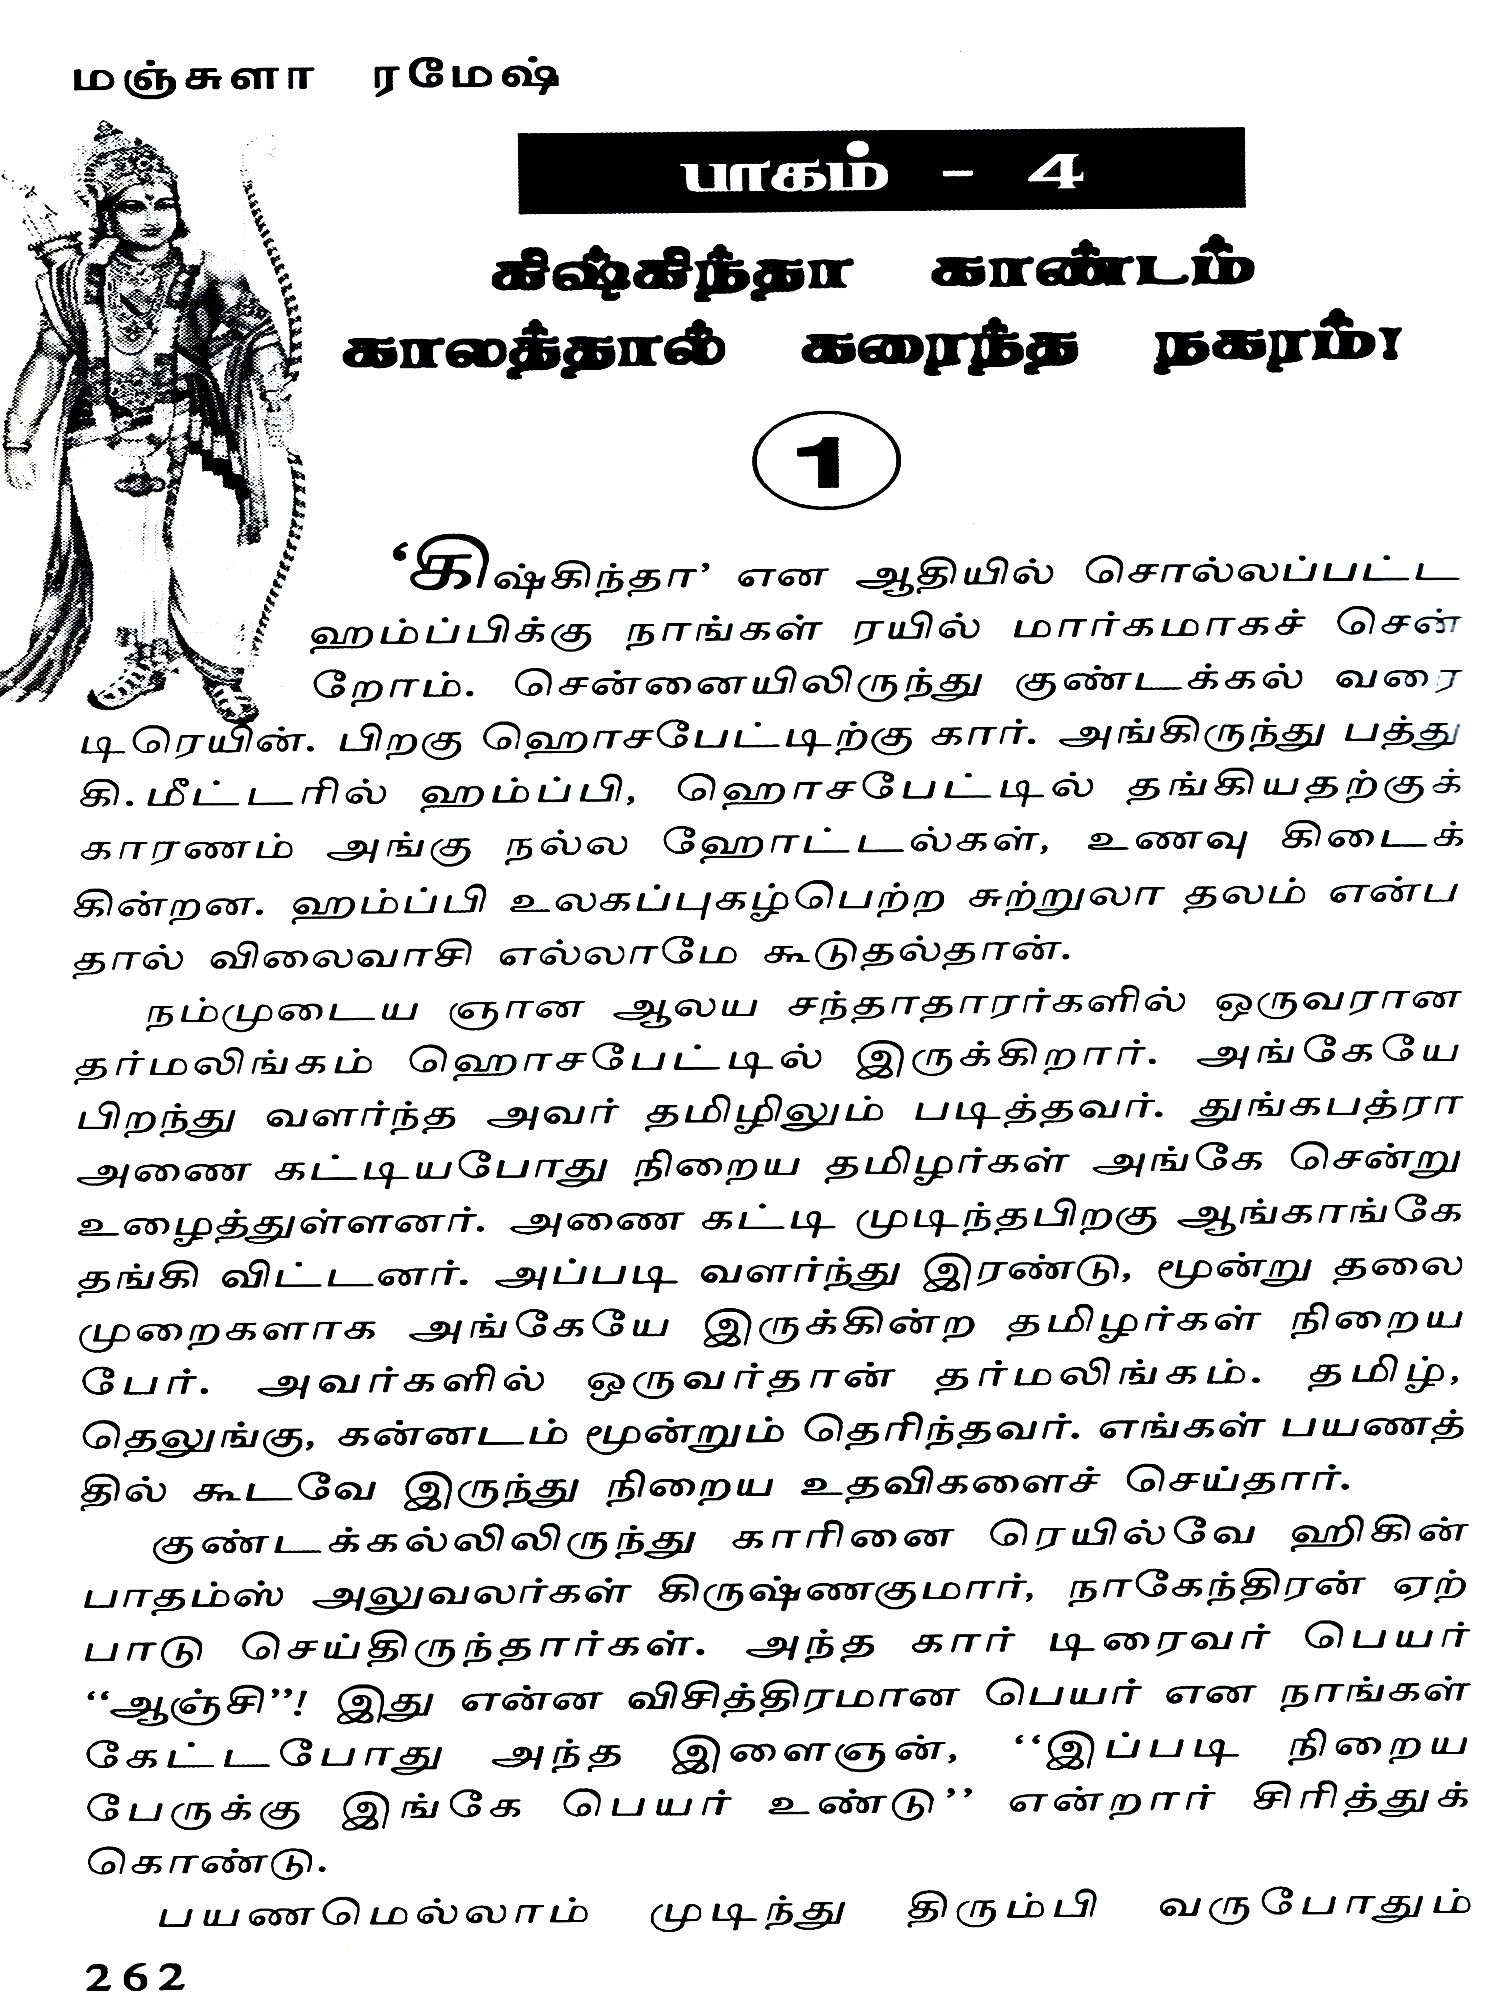 மஞ்சுளா ரமேஷ்
பாகம் - 4
கிஷ்கிந்தா காண்டம்
காலத்தால் கரைந்த நகரம்!
1
‘கிஷ்கிந்தா’ என ஆதியில் சொல்லப்பட்ட
ஹம்ப்பிக்கு நாங்கள் ரயில் மார்கமாகச் சென்
றோம். சென்னையிலிருந்து குண்டக்கல் வரை
டிரெயின். பிறகு ஹொசபேட்டிற்கு கார். அங்கிருந்து பத்து
கி.மீட்டரில் ஹம்ப்பி, ஹொசபேட்டில் தங்கியதற்குக்
காரணம் அங்கு நல்ல ஹோட்டல்கள், உணவு கிடைக்
கின்றன. ஹம்ப்பி உலகப்புகழ்பெற்ற சுற்றுலா தலம் என்ப
தால் விலைவாசி எல்லாமே கூடுதல்தான்.
நம்முடைய ஞான ஆலய சந்தாதாரர்களில் ஒருவரான
தர்மலிங்கம் ஹொசபேட்டில் இருக்கிறார். அங்கேயே
பிறந்து வளர்ந்த அவர் தமிழிலும் படித்தவர். துங்கபத்ரா
அணை கட்டியபோது நிறைய தமிழர்கள் அங்கே சென்று
உழைத்துள்ளனர். அணை கட்டி முடிந்தபிறகு ஆங்காங்கே
தங்கி விட்டனர். அப்படி வளர்ந்து இரண்டு, மூன்று தலை
முறைகளாக அங்கேயே இருக்கின்ற தமிழர்கள் நிறைய
பேர். அவர்களில் ஒருவர்தான் தர்மலிங்கம். தமிழ்,
தெலுங்கு, கன்னடம் மூன்றும் தெரிந்தவர். எங்கள் பயணத்
தில் கூடவே இருந்து நிறைய உதவிகளைச் செய்தார்.
குண்டக்கல்லிலிருந்து காரினை ரெயில்வே ஹிகின்
பாதம்ஸ் அலுவலர்கள் கிருஷ்ணகுமார், நாகேந்திரன் ஏற்
பாடு செய்திருந்தார்கள். அந்த கார் டிரைவர் பெயர்
“ஆஞ்சி”! இது என்ன விசித்திரமான பெயர் என நாங்கள்
கேட்டபோது அந்த இளைஞன், “இப்படி நிறைய
பேருக்கு இங்கே பெயர் உண்டு” என்றார் சிரித்துக்
கொண்டு.
பயணமெல்லாம் முடிந்து திரும்பி வருபோதும்
262